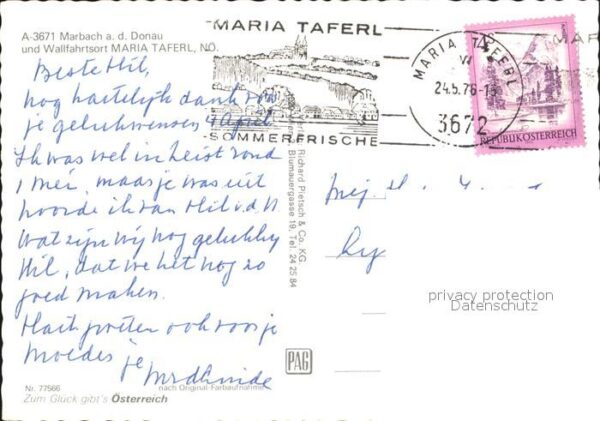 A-3671 Marbach a. d. Donau
und Wallfahrtsort MARIA TAFERL, NÖ.
Beste Hil,
nog hartelijk dank voor
je gelukwensen 4 April
Ik was wel in Heist rond
1 mei, maar je was uit
hoorde ik van Hil v.d.
Wat zijn wij nog gelukkig
Hil, dat we het nog zo
goed maken.
Hart. groeten ook voor je
Moeder je
Nr. 77566
nach Original-Farbaufnahme
Zum Glück gibt's Österreich
Verlag Richard Pietsch & Co. KG.
Wien, Blumauergasse 19, Tel. 24 25 84
PAG
MARIA TAFERL
SOMMERFRISCHE
MARIA TAFERL
24.5.76
3672
REPUBLIK ÖSTERREICH
Mej.
privacy protection
Datenschutz